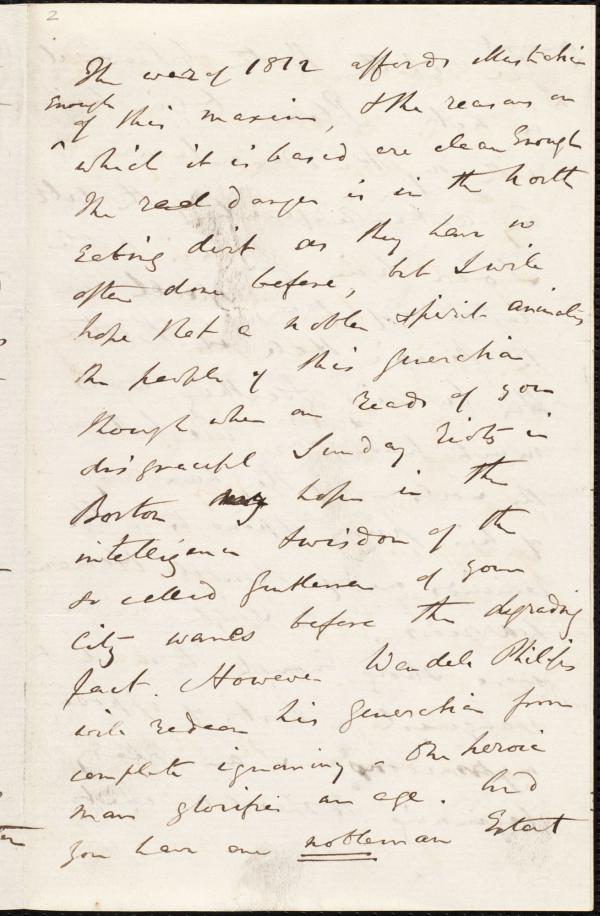 2
The war of 1812 affords illustration
Enough
of this maxim, & the reasons on
which it is based are clear Enough
The real danger is in the North
Eating dirt as they have so
often done before, but I will
hope that a nobler spirit animates
the people of this generation
though when one reads of your
disgraceful Sunday riots in
Boston my hope in the
intelligence & wisdom of the
so called gentlemen of your
City wanes before the degrading
fact. However Wendell Phillips
will redeem his generation from
complete ignominy - One heroic
man glorifies an age. And
you have one nobleman Extant